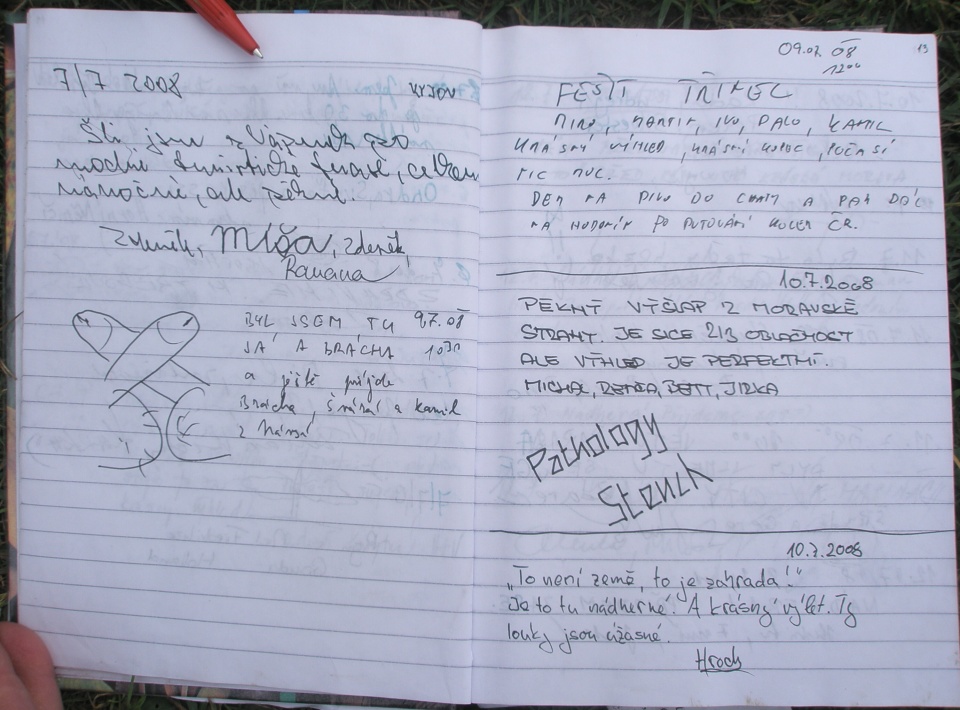 7/7 2008 KYJOV
Šli jsme z Vápenek po
modré turistické trase, celkem
náročné, ale pěkné.
Zdeněk, Míša, Zdeněk,
Romana
BYL JSEM TU 9.7.08
JÁ A BRÁCHA 10³⁰
a ještě přijde
Brácha, a Kamil
z
13
09.07.08
12⁰⁰
FEŠTI TŘIKEC
MIRO, MARTIN, IVO, PALO, KAMIL
KRÁSNÝ VÝHLED, KRÁSNÝ KOPEC, POČASÍ
NIC MOC.
DEM NA PIVO DO CHATY A PAK DÁL
NA HODONÍN PO PUTOVÁNÍ KOLEM ČR.
10.7.2008
PĚKNÝ VÝŠLAP Z MORAVSKÉ
STRANY. JE SICE 2/3 OBLAČNOST
ALE VÝHLED JE PERFEKTNÍ.
MICHAL, RENČA, BETT, JIRKA
Pathology
Stench
10.7.2008
„To není země, to je zahrada!"
Je to tu nádherné! A krásný výlet. Ty
louky jsou úžasné.
Hroch